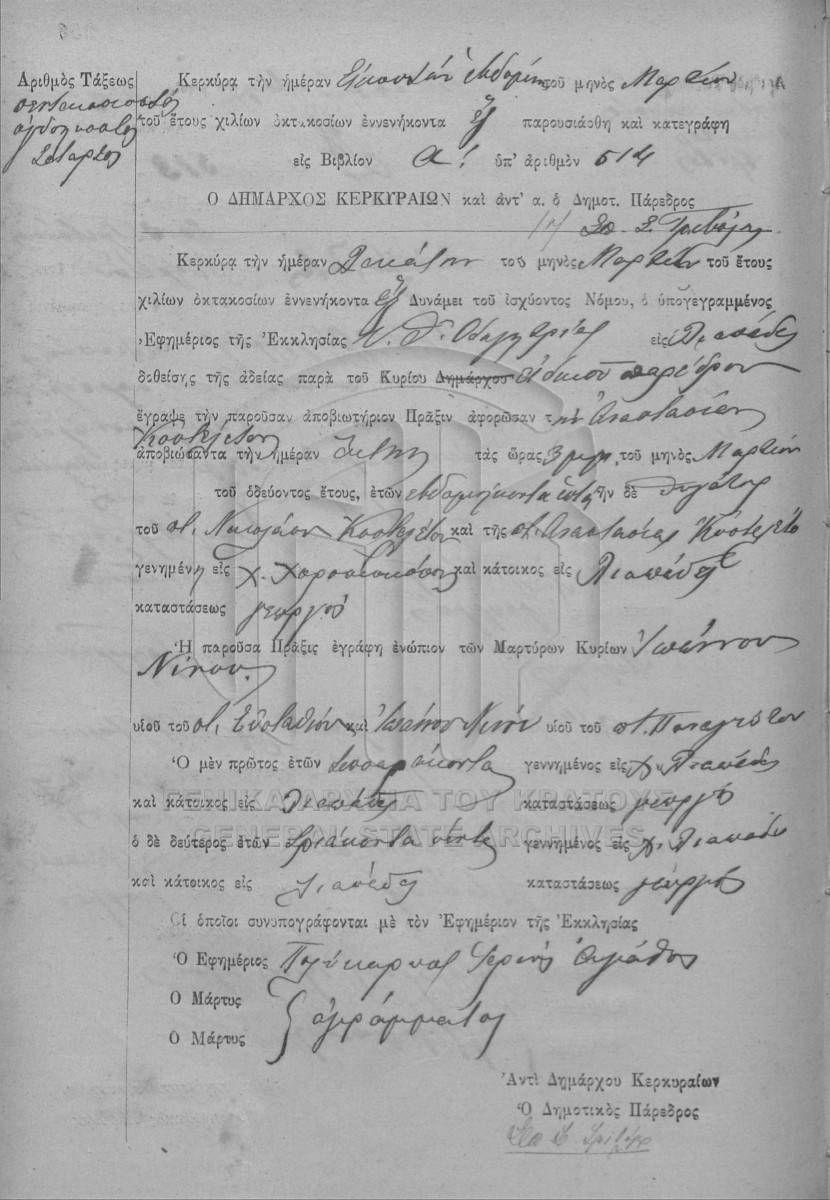 Ἀριθμὸς Τάξεως
πεντακοσιοστὸς
ὀγδοηκοστὸς
τέταρτος
Κερκύρα τὴν ἡμέραν Εἰκοστὴν ἑβδόμην τοῦ μηνὸς Μαρτίου
τοῦ ἔτους χιλίων ὀκτακοσίων ἐννενήκοντα ἓξ παρουσιάσθη καὶ κατεγράφη
εἰς Βιβλίον Α! ὑπ' ἀριθμὸν 514
Ο ΔΗΜΑΡΧΟΣ ΚΕΡΚΥΡΑΙΩΝ καὶ ἀντ' α. ὁ Δημοτ. Πάρεδρος
Σπ. Σ.
Κερκύρᾳ τὴν ἡμέραν Δεκάτην τοῦ μηνὸς Μαρτίου τοῦ ἔτους
χιλίων ὀκτακοσίων ἐννενήκοντα ἓξ Δυνάμει τοῦ ἰσχύοντος Νόμου, ὁ ὑπογεγραμμένος
Ἐφημέριος τῆς Ἐκκλησίας Υ. Θ. Οδηγητρίας εἰς Λιαπάδες
δοθείσης τῆς ἀδείας παρὰ τοῦ Κυρίου Δημάρχου εἰδικοῦ παρέδρου
ἔγραψε τὴν παροῦσαν ἀποβιωτήριον Πρᾶξιν ἀφορῶσαν τὴν Ἀναστασίαν
Κοστελέτου
ἀποβιώσαντα τὴν ἡμέραν τὰς ὥρας 3 μ.μ. τοῦ μηνὸς Μαρτίου
τοῦ ὁδεύοντος ἔτους, ἐτῶν ἑβδομήκοντα ἑπτὰ τὴν δὲ θυγάτηρ
τοῦ π. Νικολάου Κοστελέτου καὶ τῆς π. Αναστασίας Κοστελέτο
γενημένη εἰς χ. καὶ κάτοικος εἰς Λιαπάδες
καταστάσεως γεωργοῦ
Ἡ παροῦσα Πρᾶξις ἐγράφη ἐνώπιον τῶν Μαρτύρων Κυρίων Ἰωάννου
Νίνου.
υἱοῦ τοῦ π. Εὐσταθίου καὶ Ἰωάννου Νίνου υἱοῦ τοῦ π. Παναγιώτου
Ὁ μὲν πρῶτος ἐτῶν τεσσαράκοντα γεννημένος εἰς χ. Λιαπάδες
καὶ κάτοικος εἰς Λιαπάδες καταστάσεως γεωργὸς
ὁ δὲ δεύτερος ἐτῶν τριάκοντα πέντε γεννημένος εἰς χ. Λιαπάδες
καὶ κάτοικος εἰς Λιαπάδες καταστάσεως γεωργὸς
Οἱ ὁποῖοι συνυπογράφονται μὲ τὸν Ἐφημέριον τῆς Ἐκκλησίας
Ὁ Ἐφημέριος Πολύκαρπος Ἱερεὺς Ἀγάθος
Ὁ Μάρτυς
ἀγράμματοι
Ὁ Μάρτυς
Ἀντὶ Δημάρχου Κερκυραίων
Ὁ Δημοτικὸς Πάρεδρος
ΓΕΝΙΚΑ ΑΡΧΕΙΑ ΤΟΥ ΚΡΑΤΟΥΣ
GENERAL STATE ARCHIVES